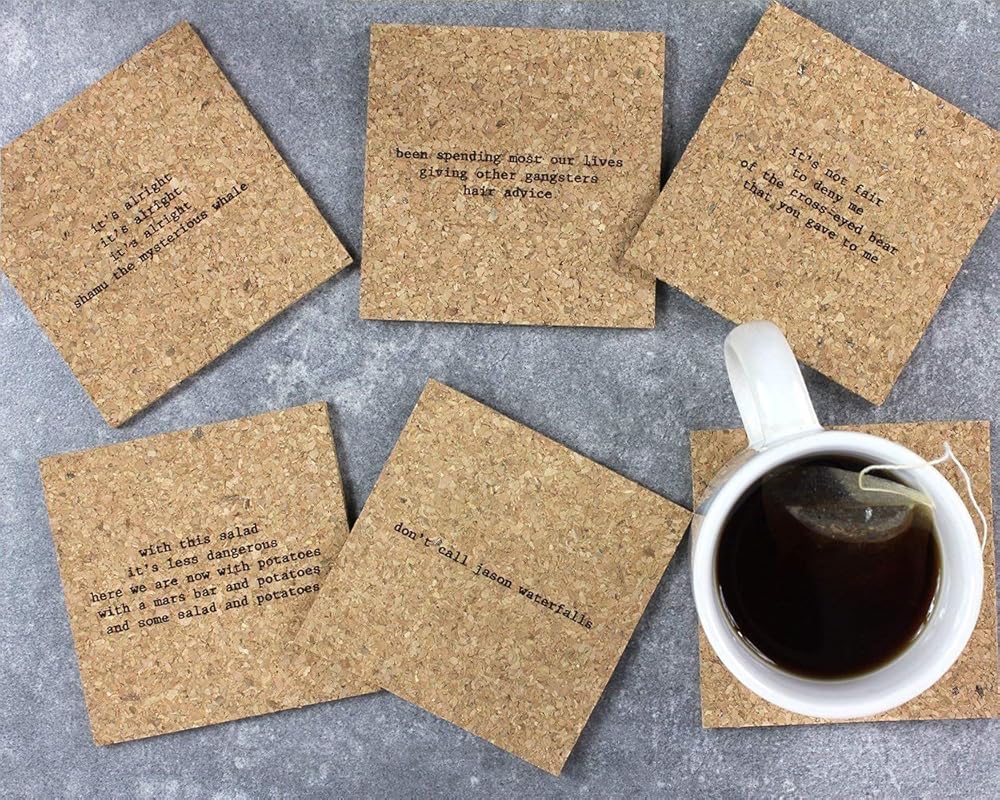 it's alright
it's alright
it's alright
shamu the mysterious whale
been spending most our lives
giving other gangsters
hair advice
it's not fair
to deny me
of the cross-eyed bear
that you gave to me
with this salad
it's less dangerous
here we are now with potatoes
with a mars bar and potatoes
and some salad and potatoes
don't call jason waterfalls